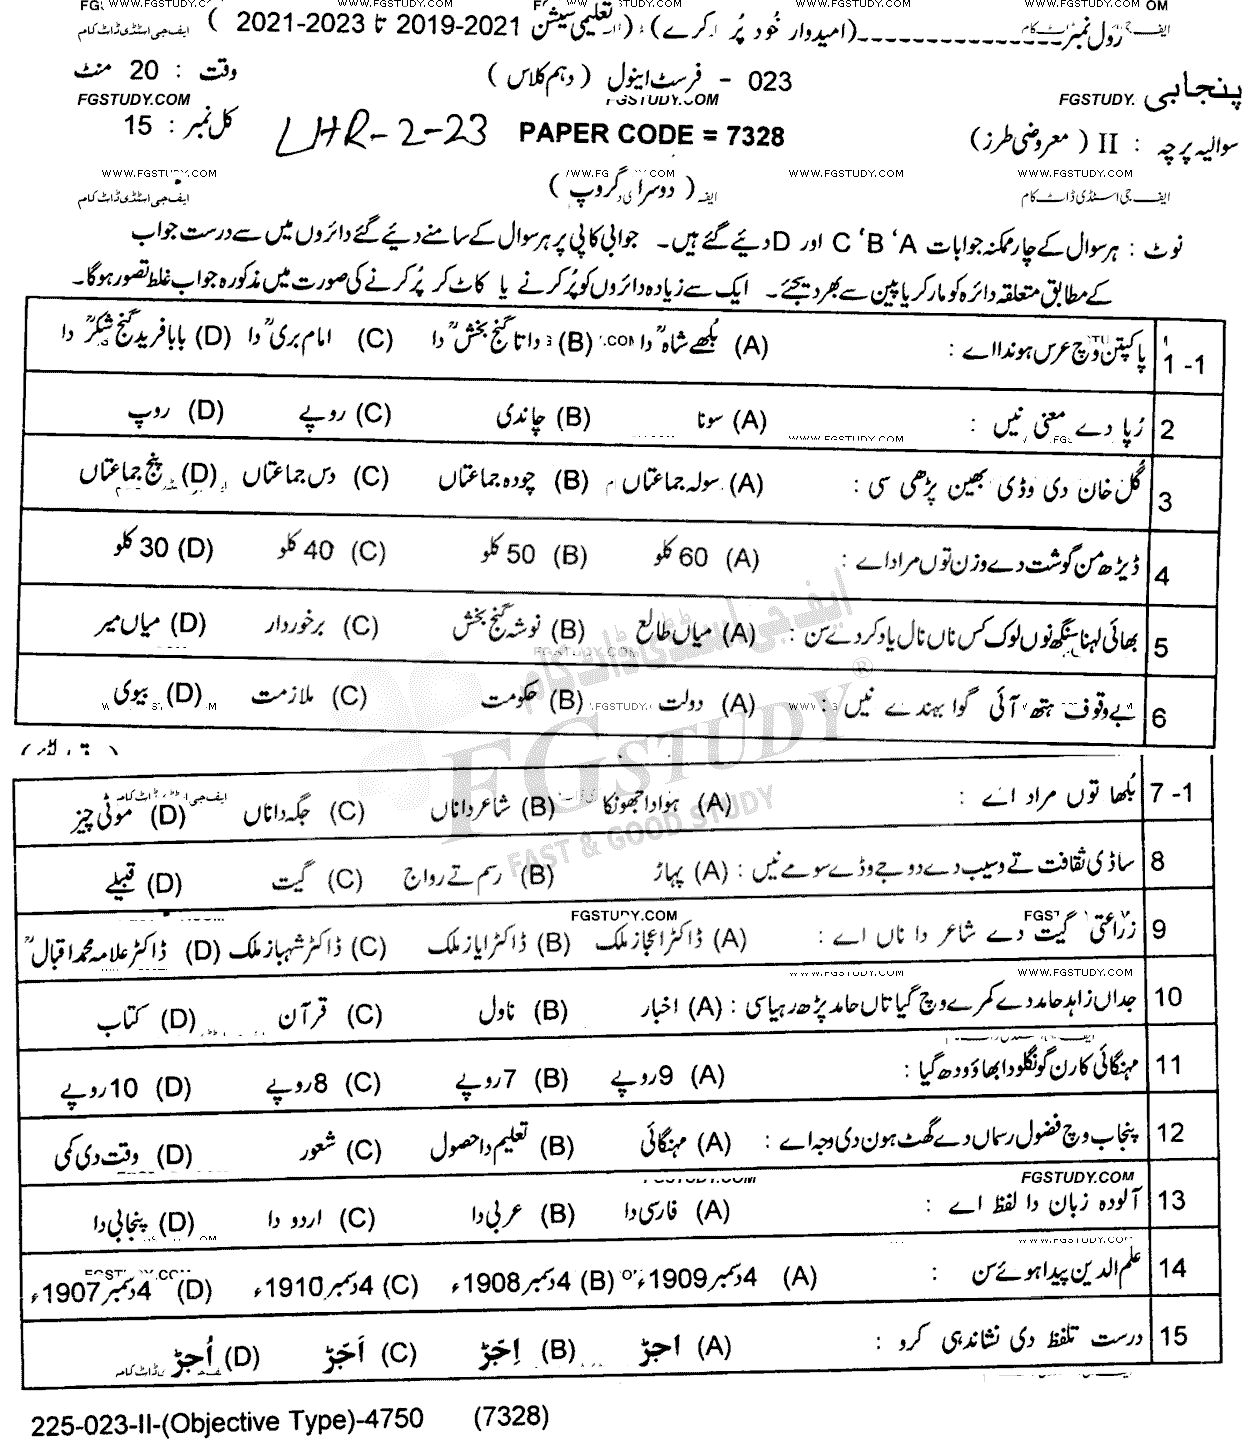 رول نمبر ــــــــــــــــ (امیدوار خُود پُر کرے) (تعلیمی سیشن 2021-2019 تا 2023-2021)
پنجابی 023 - فرسٹ اینول (دہم کلاس) وقت : 20 منٹ
FGSTUDY.COM FGSTUDY.COM FGSTUDY.
سوالیہ پرچہ : II (معروضی طرز) PAPER CODE = 7328 LHR-2-23 کل نمبر : 15
WWW.FGSTUDY.COM WWW.FGSTUDY.COM WWW.FGSTUDY.COM
ایف جی اسٹڈی ڈاٹ کام (دوسرا گروپ) ایف جی اسٹڈی ڈاٹ کام
نوٹ : ہر سوال کے چار ممکنہ جوابات A ‘B ‘C اور D دیئے گئے ہیں۔ جوابی کاپی پر ہر سوال کے سامنے دیئے گئے دائروں میں سے درست جواب
کے مطابق متعلقہ دائرہ کو مارکر یا پین سے بھر دیجئے۔ ایک سے زیادہ دائروں کو پُر کرنے یا کاٹ کر پُر کرنے کی صورت میں مذکورہ جواب غلط تصور ہوگا۔
1-1 پاکپتن وچ عرس ہوندا اے : (A) بُلھے شاہؒ دا (B) داتا گنج بخشؒ دا (C) امام بریؒ دا (D) بابا فرید گنج شکرؒ دا
2 رُپا دے معنی نیں : (A) سونا (B) چاندی (C) روپے (D) روپ
3 گُل خان دی وڈی بھین پڑھی سی : (A) سولہ جماعتاں (B) چودہ جماعتاں (C) دس جماعتاں (D) پنج جماعتاں
4 ڈیڑھ من گوشت دے وزن توں مراد اے : (A) 60 کلو (B) 50 کلو (C) 40 کلو (D) 30 کلو
5 بھائی لہنا سنگھ نوں لوک کس ناں نال یاد کردے سن : (A) میاں طالع (B) نوشہ گنج بخش (C) برخوردار (D) میاں میر
6 بے وقوف ہتھ آئی گوا بہندے نیں : (A) دولت (B) حکومت (C) ملازمت (D) بیوی
7-1 بُلھا توں مراد اے : (A) ہوا دا جھونکا (B) شاعر دا ناں (C) جگہ دا ناں (D) موٹی چیز
8 ساڈی ثقافت تے وسیب دے دوجے وڈے سومے نیں : (A) پہاڑ (B) رسم تے رواج (C) گیت (D) قبیلے
9 زراعتی گیت دے شاعر دا ناں اے : (A) ڈاکٹر اعجاز ملک (B) ڈاکٹر ایاز ملک (C) ڈاکٹر شہباز ملک (D) ڈاکٹر علامہ محمد اقبالؒ
10 جداں زاہد حامد دے کمرے وچ گیا تاں حامد پڑھ رہیا سی : (A) اخبار (B) ناول (C) قرآن (D) کتاب
11 مہنگائی کارن گونگلو دا بھاؤ ودھ گیا : (A) 9 روپے (B) 7 روپے (C) 8 روپے (D) 10 روپے
12 پنجاب وچ فضول رسماں دے گھٹ ہون دی وجہ اے : (A) مہنگائی (B) تعلیم دا حصول (C) شعور (D) وقت دی کمی
13 آلودہ زبان دا لفظ اے : (A) فارسی دا (B) عربی دا (C) اردو دا (D) پنجابی دا
14 علم الدین پیدا ہوئے سن : (A) 4 دسمبر 1909ء (B) 4 دسمبر 1908ء (C) 4 دسمبر 1910ء (D) 4 دسمبر 1907ء
15 درست تلفظ دی نشاندہی کرو : (A) اجڑ (B) اِجّڑ (C) اَجّڑ (D) اُجڑ
ایف جی اسٹڈی ڈاٹ کام
FGSTUDY®
FAST & GOOD STUDY
225-023-II-(Objective Type)-4750 (7328)